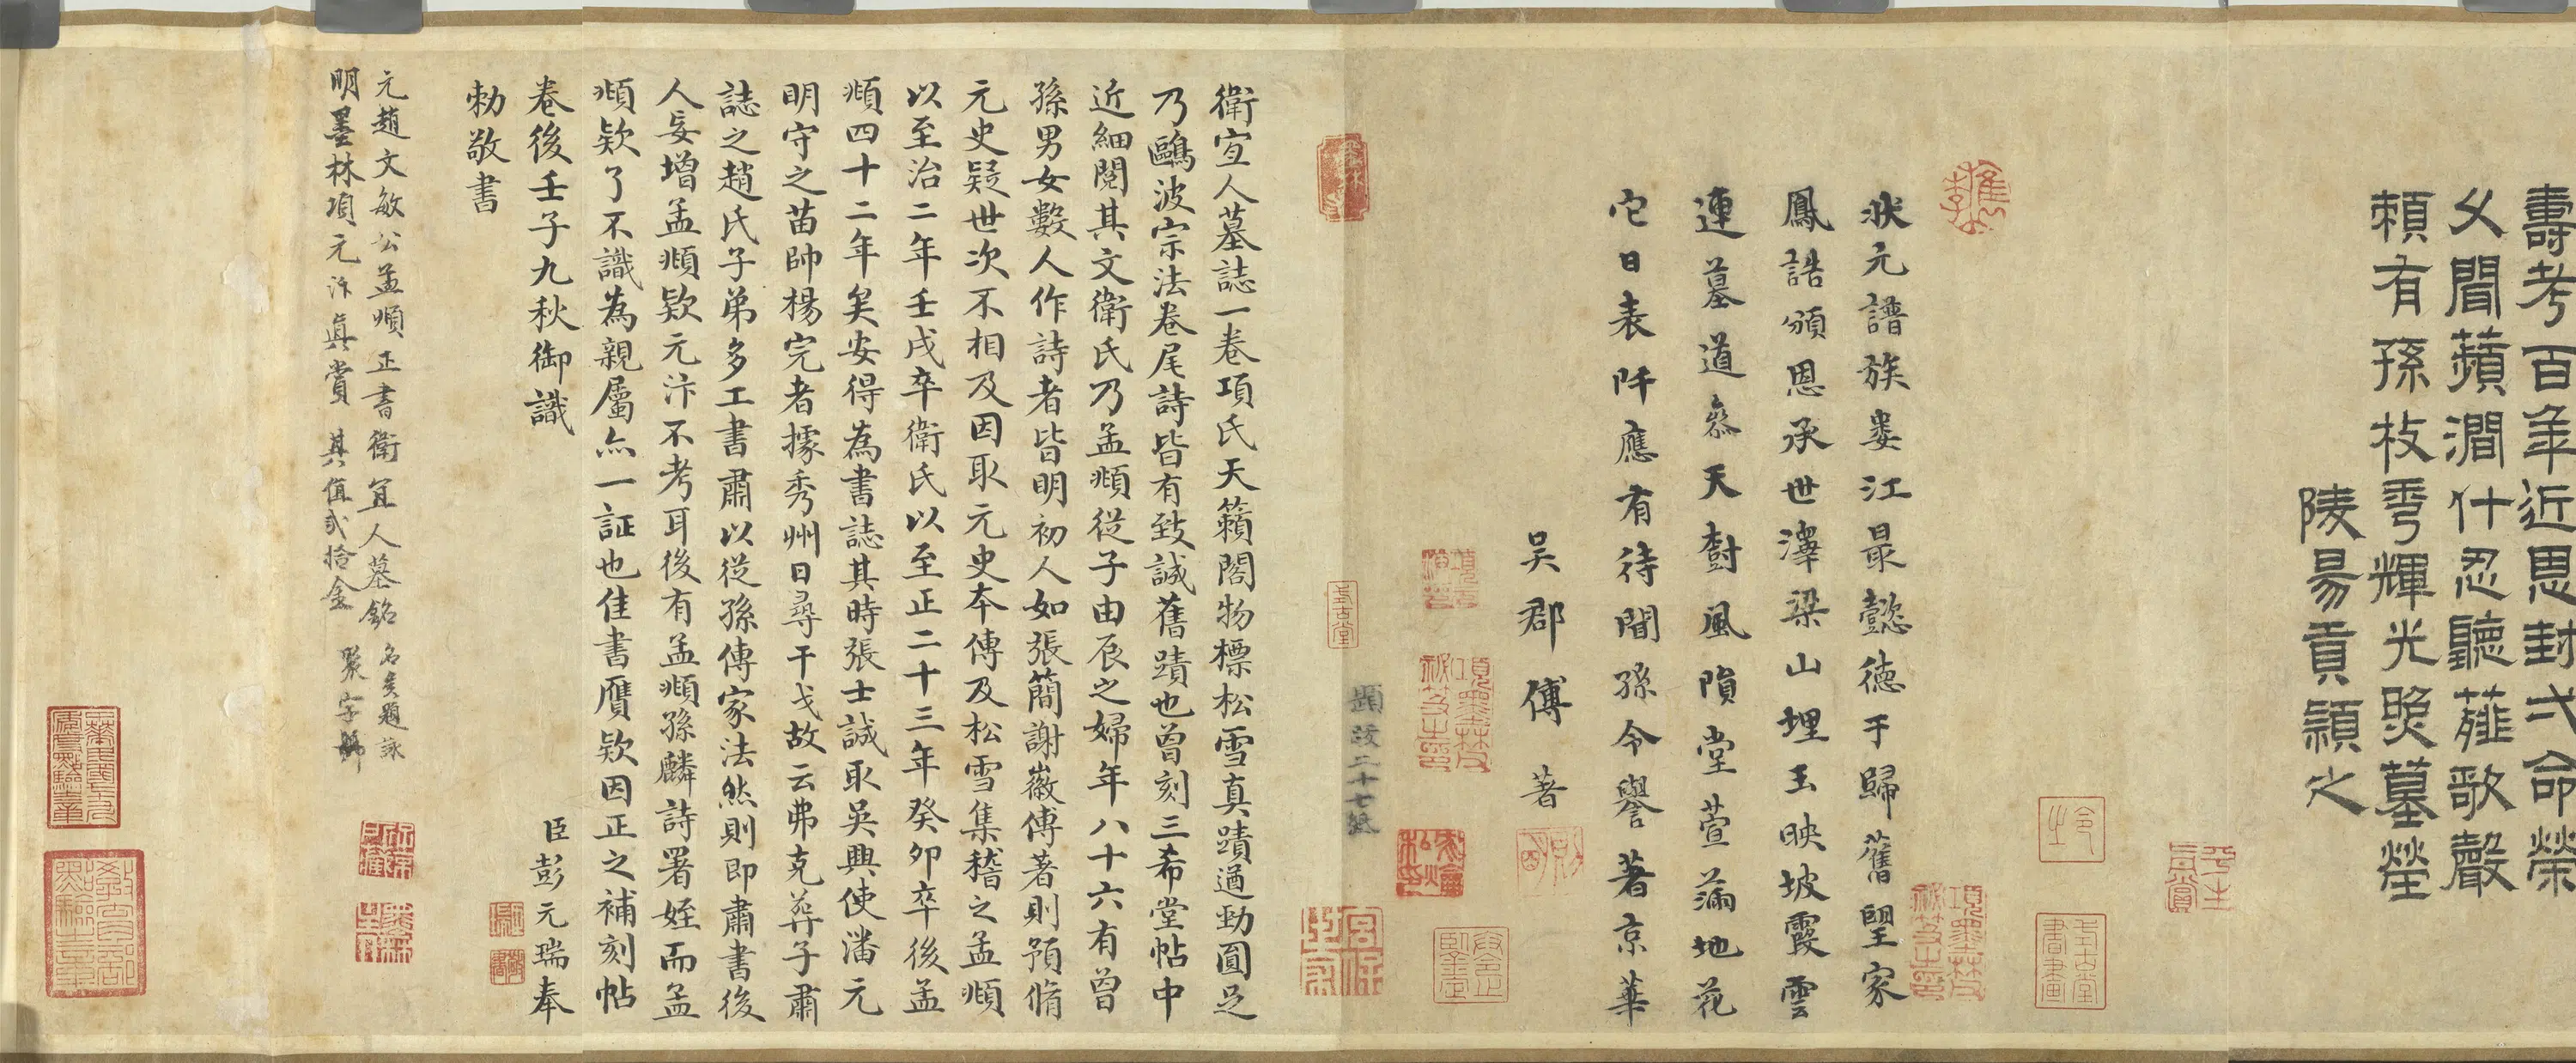 壽考百年近思封弍命榮
夊間蘋澗什忍聽薤歌聲
賴有孫枝秀輝光照墓塋
陵昜貢穎之
狀元譜族婁江最懿徳于歸舊望家
鳳誥頒恩承世澤梁山埋玉映坡霞雲
連墓道叅天樹風隕堂萱滿地花
它日表阡應有待間孫令譽著京華
吴郡傅著
題跋二十七
衛宜人墓誌一卷項氏天籟閣物標松雪真蹟遒勁圓足
乃鷗波宗法卷尾詩皆有致誠舊蹟也曾刻三希堂帖中
近細閱其文衛氏乃孟頫從子由辰之婦年八十六有曾
孫男女數人作詩者皆明初人如張簡謝徽傅著則預脩
元史疑世次不相及因取元史本傳及松雪集稽之孟頫
以至治二年壬戌卒衛氏以至正二十三年癸卯卒後孟
頫四十二年矣安得為書誌其時張士誠取吳興使潘元
明守之苗帥楊完者據秀州日尋干戈故云弗克葬子肅
誌之趙氏子弟多工書肅以從孫傳家法然則即肅書後
人妄增孟頫欵元汴不考耳後有孟頫孫麟詩署姪而孟
頫欵了不識為親屬亦一証也佳書贋欵因正之補刻帖
卷後壬子九秋御識
臣彭元瑞奉
勅敬書
元趙文敏公孟頫正書衛宜人墓銘 名賢題詠
明墨林項元汴真賞 其值貳拾金